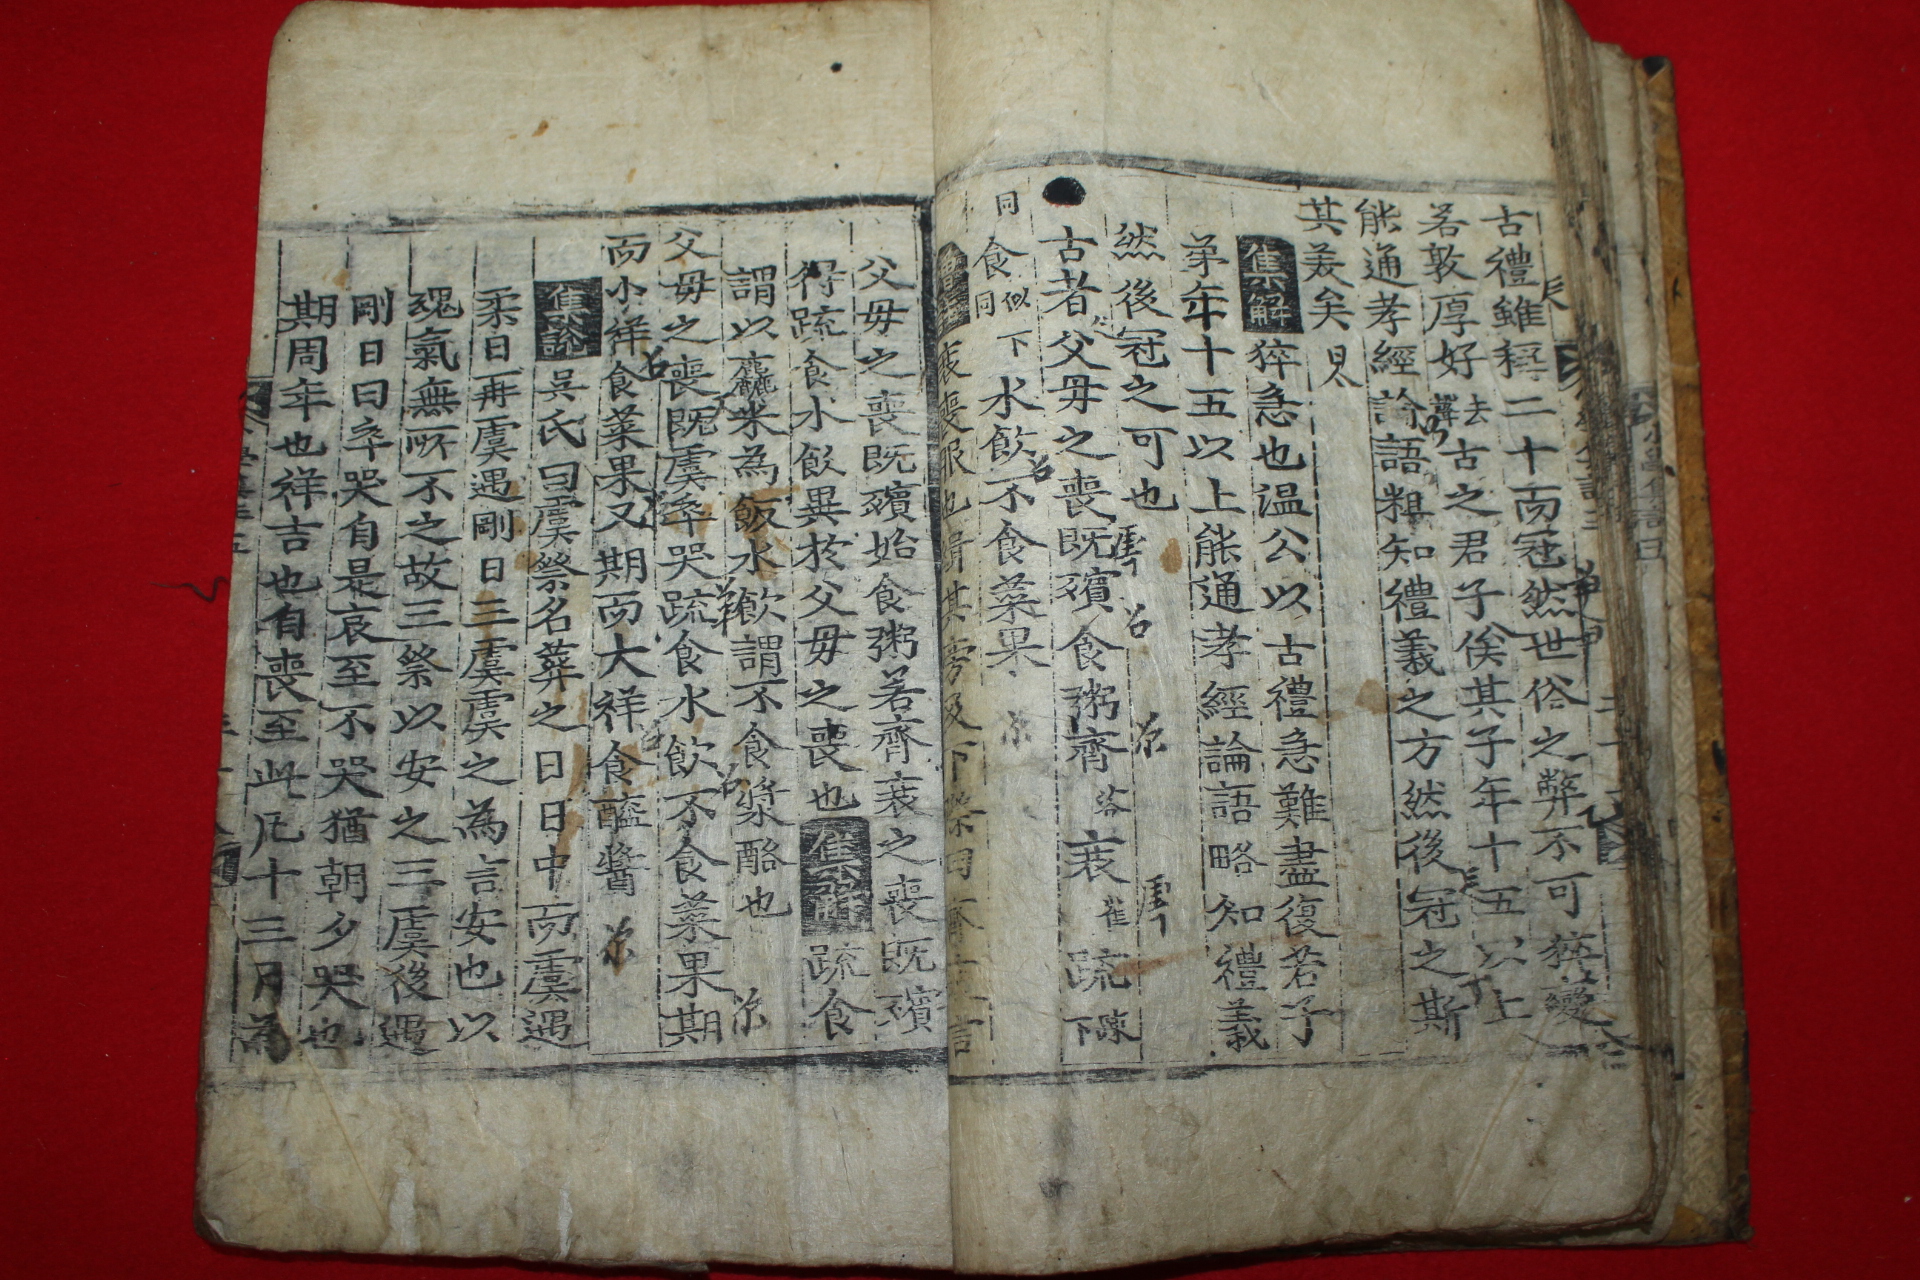 古禮雖稱二十而冠然世俗之弊不可猝變
若敦厚好去聲古之君子俟其子年十五以上
能通孝經論語粗知禮義之方然後冠之斯
其羙矣
集解 猝急也温公以古禮急難盡復若子
弟年十五以上能通孝經論語略知禮義
然後冠之可也
古者父母之喪既殯食粥齊衰疏
同食似同下水飮不食菜果
衰喪服也緝其旁及下際曰齊
父母之喪既殯始食粥若齊衰之喪既殯
得疏食水飮異於父母之喪也 集解 疏食
謂以麤米為飯水飮謂不食漿酪也
父母之喪既虞卒哭疏食水飮不食菜果期
而小祥食菜果又期而大祥食醯醬
集說 吳氏曰虞祭名葬之日日中而虞遇
柔日再虞遇剛日三虞虞之為言安也以
魂氣無所不之故三祭以安之三虞後遇
剛日曰卒哭自是哀至不哭猶朝夕哭也
期周年也祥吉也自喪至此凡十三月為